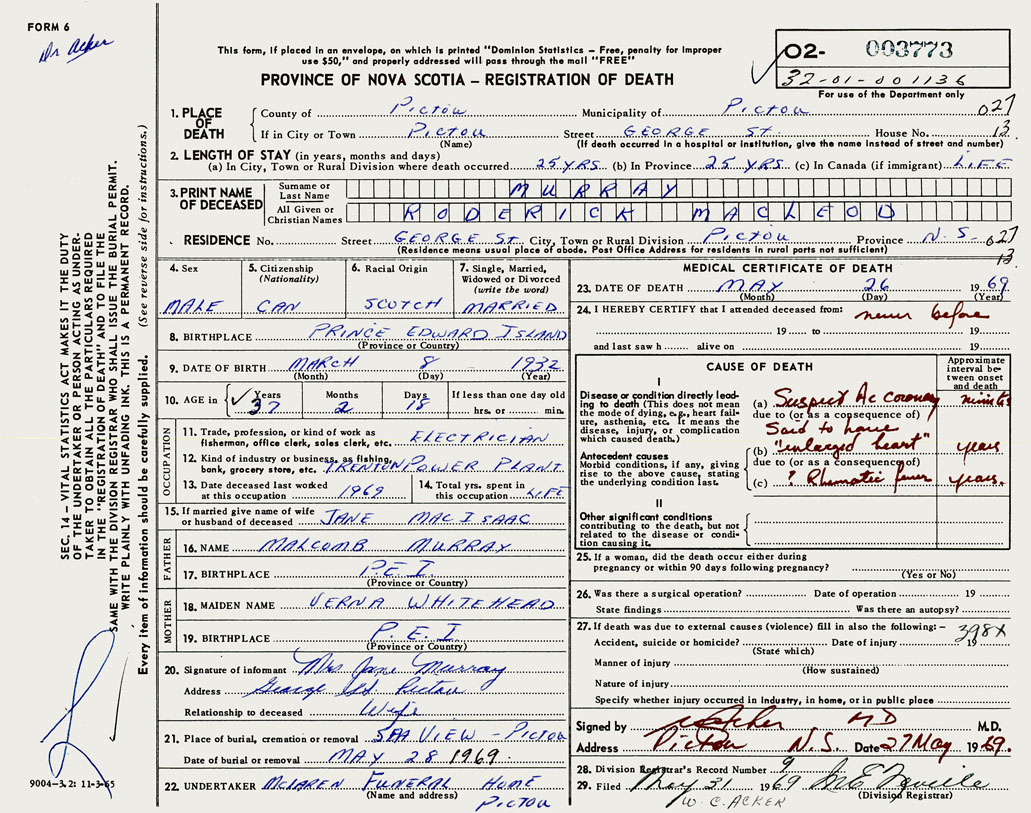 FORM 6
Dr Acker
This form, if placed in an envelope, on which is printed "Dominion Statistics – Free, penalty for improper
use $50," and properly addressed will pass through the mail "FREE"
PROVINCE OF NOVA SCOTIA – REGISTRATION OF DEATH
02- 003773
32-01-001136
For use of the Department only
1. PLACE OF DEATH
County of PICTOU Municipality of PICTOU 027
If in City or Town PICTOU Street GEORGE ST. House No. 13
(Name) (If death occurred in a hospital or institution, give the name instead of street and number)
2. LENGTH OF STAY (in years, months and days)
(a) In City, Town or Rural Division where death occurred 25 YRS (b) In Province 25 YRS. (c) In Canada (if immigrant) LIFE
3. PRINT NAME OF DECEASED
Surname or Last Name MURRAY
All Given or Christian Names RODERICK MACLEOD
RESIDENCE No. Street GEORGE ST. City, Town or Rural Division PICTOU Province N.S. 027
(Residence means usual place of abode. Post Office Address for residents in rural parts not sufficient) 13
4. Sex MALE
5. Citizenship (Nationality) CAN
6. Racial Origin SCOTCH
7. Single, Married, Widowed or Divorced (write the word) MARRIED
8. BIRTHPLACE PRINCE EDWARD ISLAND
(Province or Country)
9. DATE OF BIRTH MARCH 8 1932
(Month) (Day) (Year)
10. AGE in Years 37 Months 2 Days 18 If less than one day old hrs. or min.
OCCUPATION
11. Trade, profession, or kind of work as fisherman, office clerk, sales clerk, etc. ELECTRICIAN
12. Kind of industry or business, as fishing, bank, grocery store, etc. TRENTON POWER PLANT
13. Date deceased last worked at this occupation 1969
14. Total yrs. spent in this occupation LIFE
15. If married give name of wife or husband of deceased JANE MACISAAC
FATHER
16. NAME MALCOMB MURRAY
17. BIRTHPLACE P.E.I
(Province or Country)
MOTHER
18. MAIDEN NAME VERNA WHITEHEAD
19. BIRTHPLACE P.E.I
(Province or Country)
20. Signature of informant Mrs Jane Murray
Address George St. Pictou
Relationship to deceased Wife
21. Place of burial, cremation or removal SEA VIEW – PICTOU
Date of burial or removal MAY 28 1969.
22. UNDERTAKER MCLAREN FUNERAL HOME
(Name and address) PICTOU
MEDICAL CERTIFICATE OF DEATH
23. DATE OF DEATH MAY 26 1969
(Month) (Day) (Year)
24. I HEREBY CERTIFY that I attended deceased from: never before
19 to 19
and last saw h alive on 19
CAUSE OF DEATH
Approximate interval between onset and death
I
Disease or condition directly leading to death (This does not mean the mode of dying, e.g., heart failure, asthenia, etc. It means the disease, injury, or complication which caused death.)
(a) Suspect Ac Coronary minutes
due to (or as a consequence of)
Said to have
(b) "enlarged heart" years
Antecedent causes
Morbid conditions, if any, giving rise to the above cause, stating the underlying condition last.
due to (or as a consequence of)
(c) ? Rheumatic fever years.
II
Other significant conditions contributing to the death, but not related to the disease or condition causing it.
25. If a woman, did the death occur either during pregnancy or within 90 days following pregnancy?
(Yes or No)
26. Was there a surgical operation? Date of operation 19
State findings Was there an autopsy?
27. If death was due to external causes (violence) fill in also the following: – 398X
Accident, suicide or homicide? Date of injury 19
(State which)
Manner of injury
(How sustained)
Nature of injury
Specify whether injury occurred in industry, in home, or in public place
Signed by Acker MD M.D.
Address Pictou N.S. Date 27 May 1969.
28. Division Registrar's Record Number 9
29. Filed May 31 1969
(Division Registrar)
W. C. ACKER
SEC. 14 – VITAL STATISTICS ACT MAKES IT THE DUTY
OF THE UNDERTAKER OR PERSON ACTING AS UNDER-
TAKER TO OBTAIN ALL THE PARTICULARS REQUIRED
IN THE "REGISTRATION OF DEATH" AND TO FILE THE
SAME WITH THE DIVISION REGISTRAR WHO SHALL ISSUE THE BURIAL PERMIT.
WRITE PLAINLY WITH UNFADING INK. THIS IS A PERMANENT RECORD.
Every item of information should be carefully supplied. (See reverse side for instructions.)
9004–3.2: 11-3-65